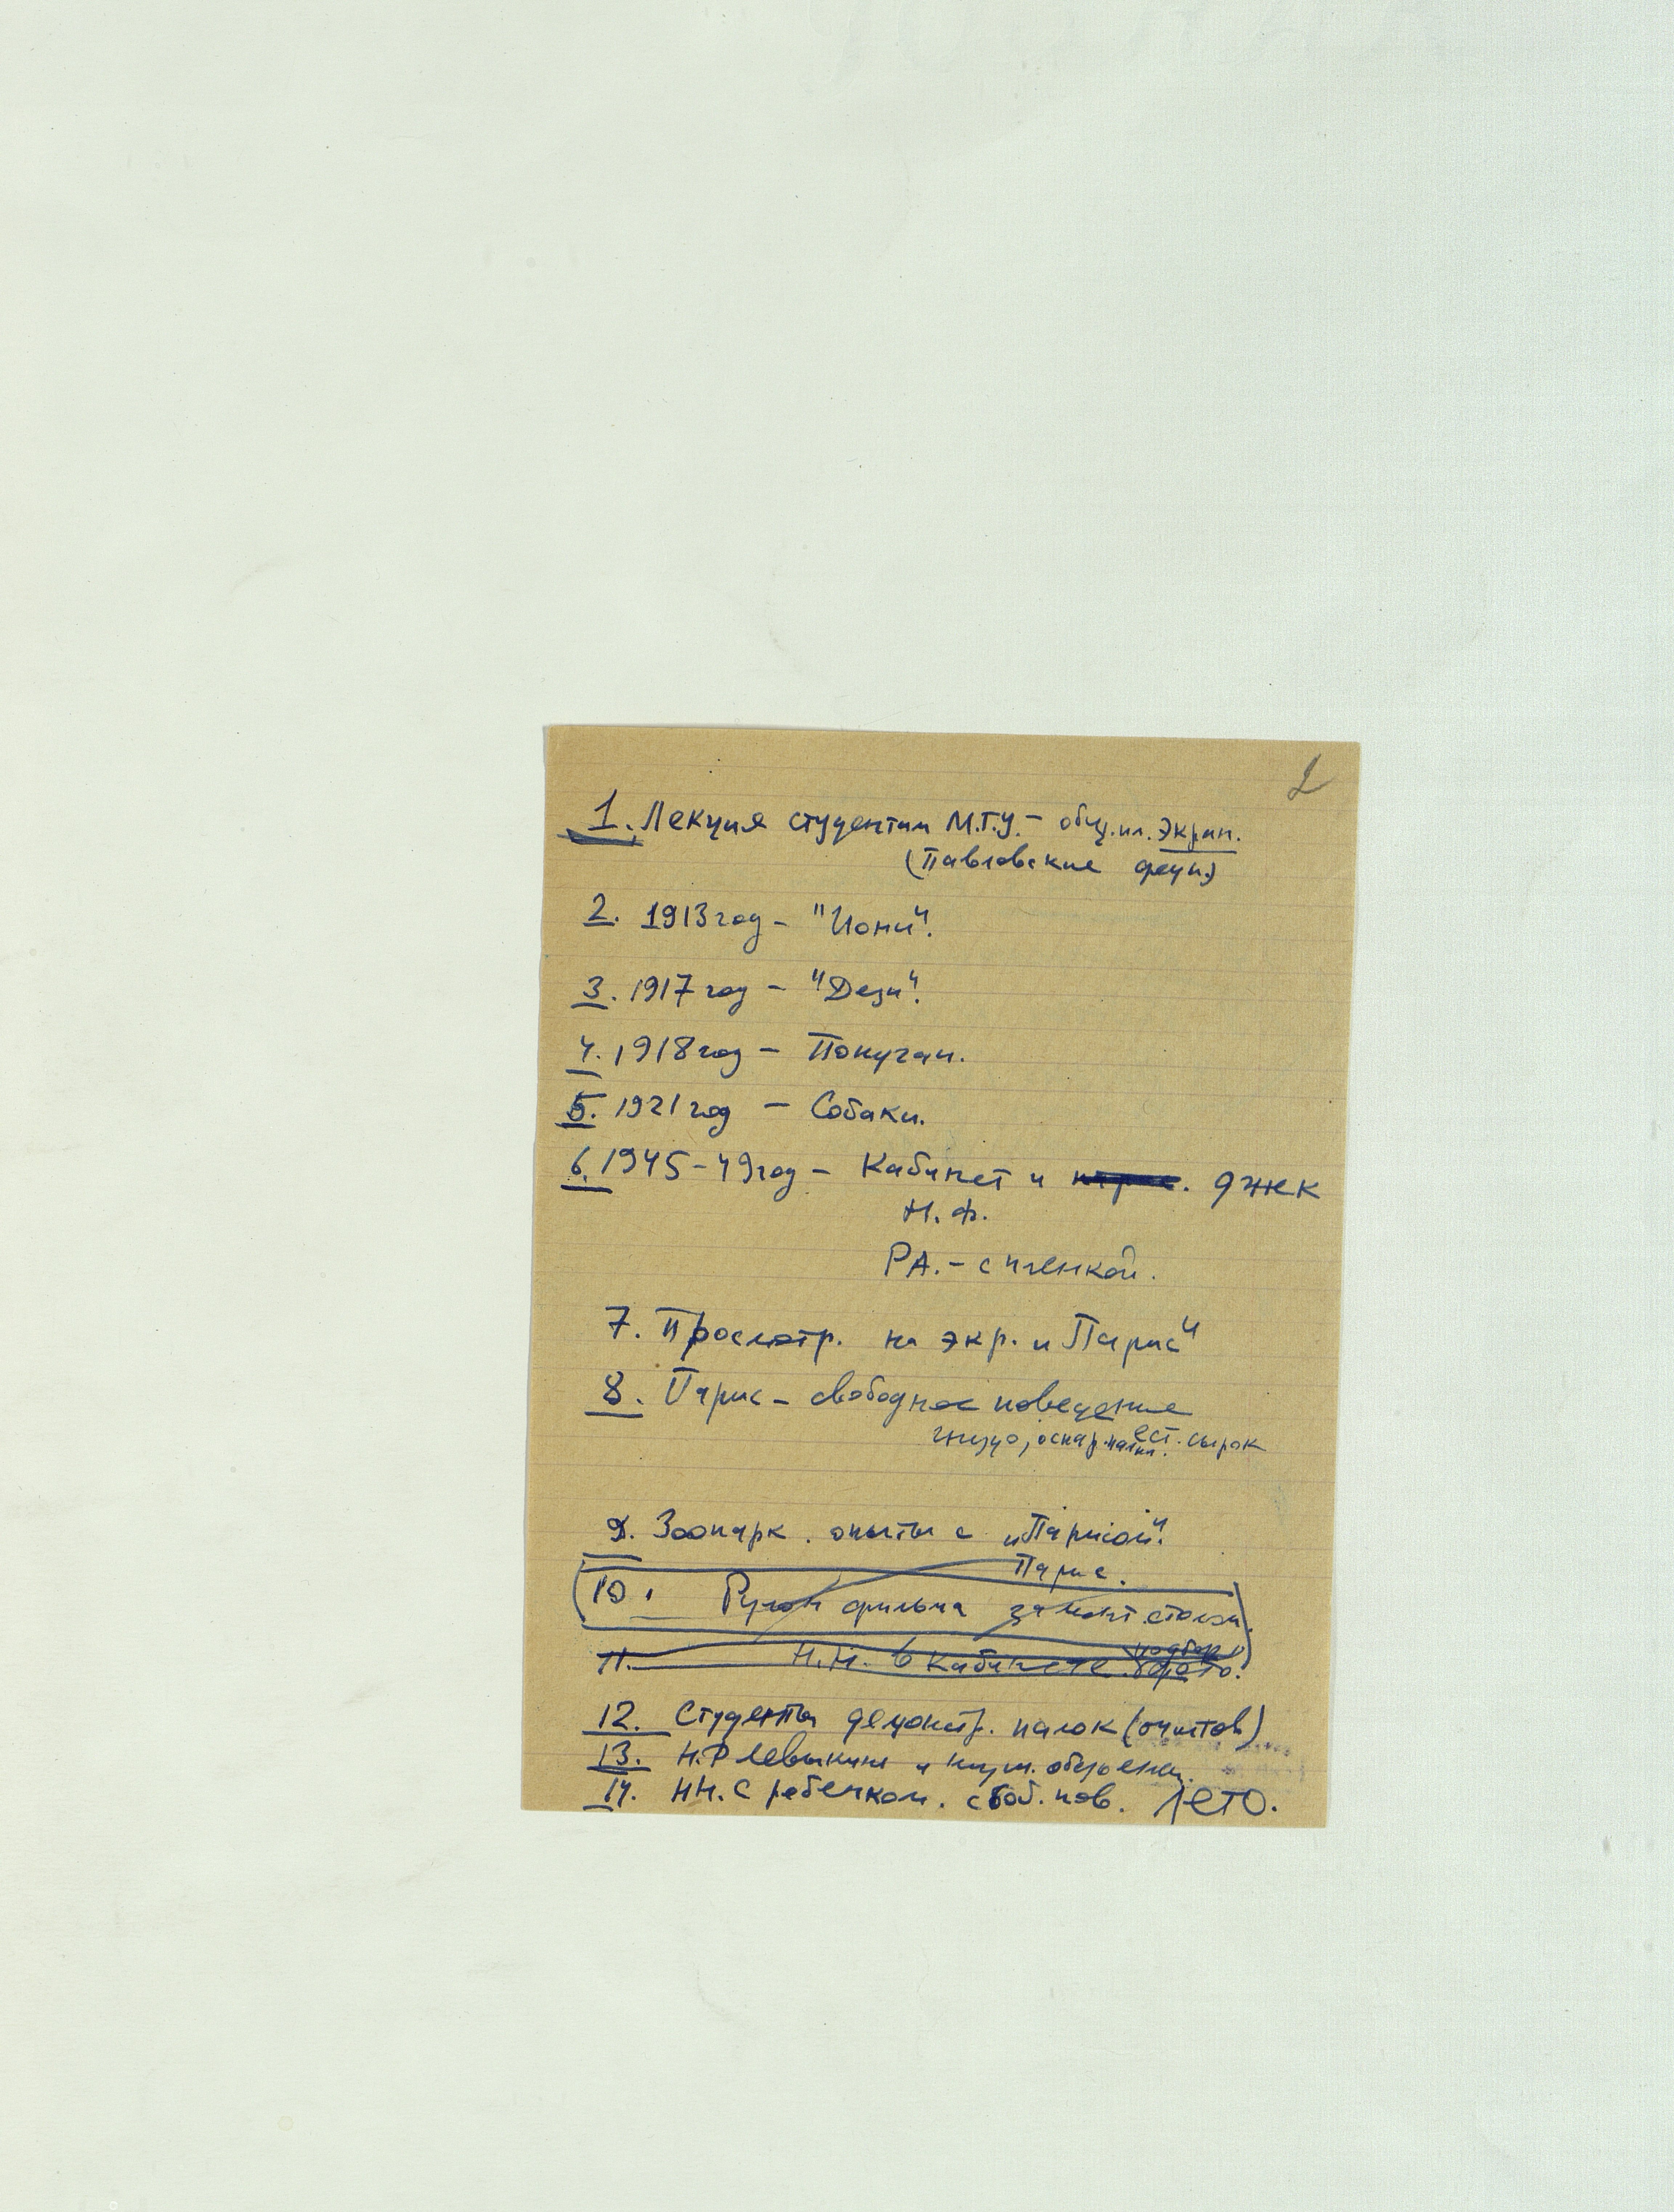 2
1. Лекция студентам М.Г.У. – общ. пл. экран.
(Павловские
2. 1913 год – "Иони".
3. 1917 год – "Дези".
4. 1918 год – Попугаи.
5. 1921 год – Собаки.
6. 1945–49 год – Кабинет и джек
Н. Ф.
РА. – с пленкой.
7. Просмотр. на экр. "Парис"
8. Парис – свободное поведение
гнездо, ест. сырок
9. Зоопарк. опыты с "Парисом".
Парис.
10. Рулон фильма за монт. столом.
11. Н.Н. в кабинете
12. Студенты демонстр. палок (опытов)
13. Н.Ф Левыкина и обезьяны.
14. НН. с ребенком. своб. пов. Лето.